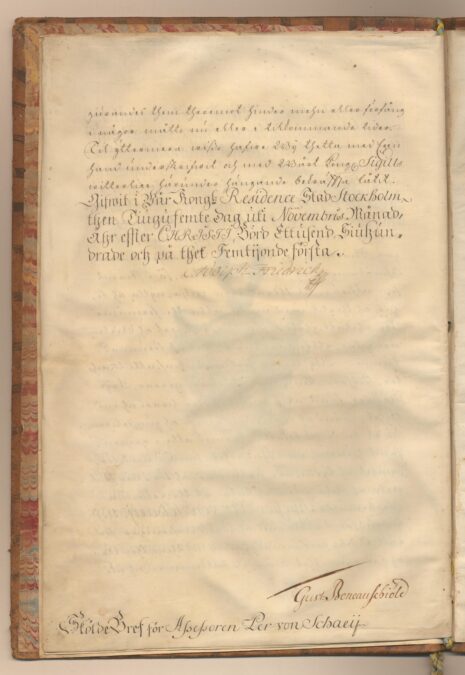 görandes them theremot hinder mehn eller förfång
i någor måtto nu eller i tilkommande tider.
Til yttermera wisso hafwe Wij thetta med Egen
hand underskrifwit och med Wårt Kongl. Sigill
witterligen härunder hängande bekräffta låtit.
Gifwit i Vår Kongl. Residence Stad Stockholm
then Tiugufemte Dag uti Novembris Månad,
Åhr effter CHRISTI Börd Ettusend, Siuhun-
drade och på thet Femtijonde första.
Adolph Friedrich
Gust. Boneauschiöld
Skölde Bref för Assessoren Per von Schaeij